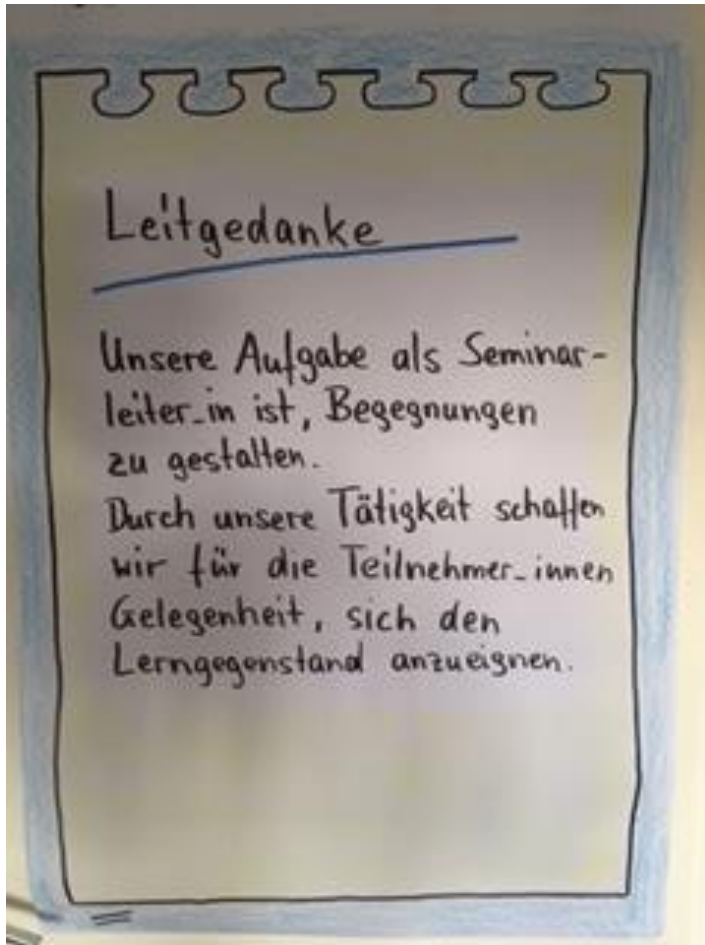 Leitgedanke
Unsere Aufgabe als Seminar-
leiter_in ist, Begegnungen
zu gestalten.
Durch unsere Tätigkeit schaffen
wir für die Teilnehmer_innen
Gelegenheit, sich den
Lerngegenstand anzueignen.